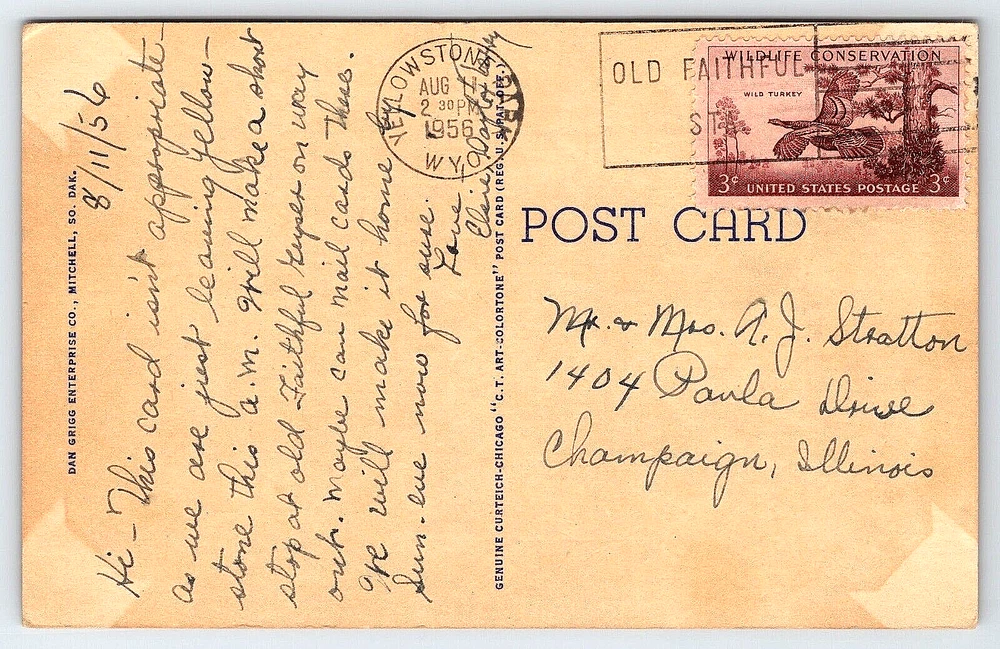 8/11/56
Hi - This card isn't appropriate -
as we are just leaving Yellow-
stone this a.m. Will make a short
stop at old Faithful Geyser on way
out. Maybe can mail cards there.
We will make it home by
Sun. eve now for sure.
Love
Elsie,
DAN GRIGG ENTERPRISE CO., MITCHELL, SO. DAK.
GENUINE CURTEICH-CHICAGO "C.T. ART-COLORTONE" POST CARD (REG. U. S. PAT. OFF.)
YELLOWSTONE
AUG 11
2 30 PM
1956
WYO.
OLD FAITHFUL
STA.
WILDLIFE CONSERVATION
WILD TURKEY
3¢ UNITED STATES POSTAGE 3¢
POST CARD
Mr. & Mrs. A. J. Stratton
1404 Paula Drive
Champaign, Illinois